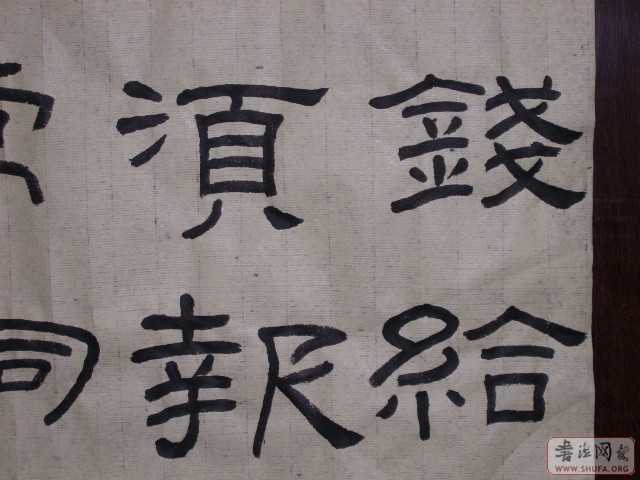 錢給
須報
司
书法网
WWW.SHUFA.ORG